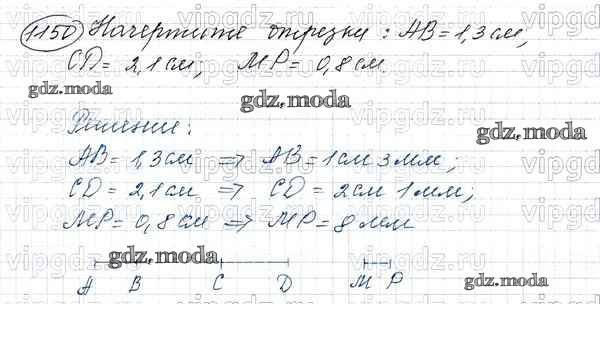 1150 Начертите отрезки: AB = 1,3 см,
CD = 2,1 см; MP = 0,8 см.
Решение:
AB = 1,3 см => AB = 1 см 3 мм;
CD = 2,1 см => CD = 2 см 1 мм;
MP = 0,8 см => MP = 8 мм
A B C D M P
gdz.moda
gdz.moda
gdz.moda
gdz.moda
gdz.moda
vipgdz.ru